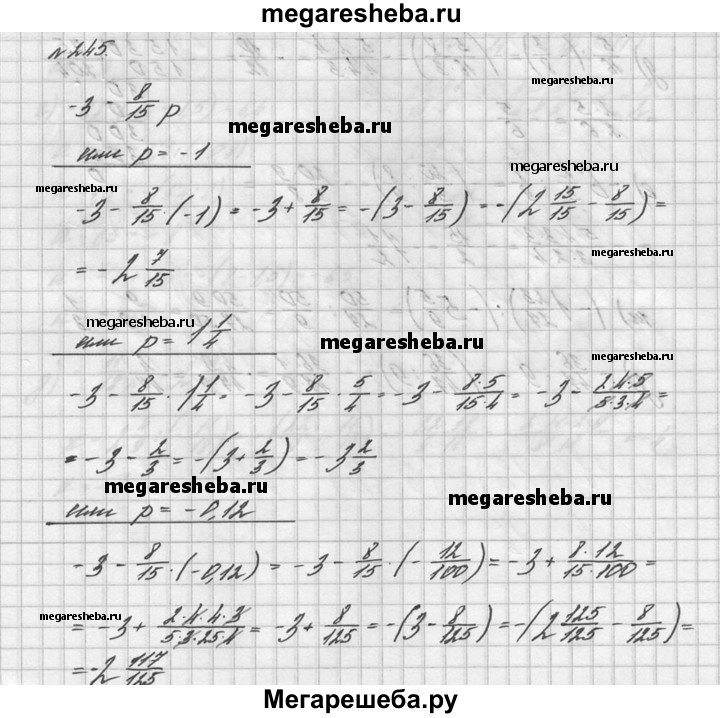 megaresheba.ru
№ 245.
megaresheba.ru
-3 - 8/15 p
megaresheba.ru
или p = -1
megaresheba.ru
megaresheba.ru
-3 - 8/15 · (-1) = -3 + 8/15 = -(3 - 8/15) = -(2 15/15 - 8/15) =
= -2 7/15
megaresheba.ru
megaresheba.ru
или p = 1 1/4
megaresheba.ru
megaresheba.ru
-3 - 8/15 · 1 1/4 = -3 - 8/15 · 5/4 = -3 - 8·5/15·4 = -3 - 2·4·5/5·3·4 =
= -3 - 2/3 = -(3 + 2/3) = -3 2/3
megaresheba.ru
megaresheba.ru
или p = -0,12
-3 - 8/15 · (-0,12) = -3 - 8/15 · (-12/100) = -3 + 8·12/15·100 =
megaresheba.ru
megaresheba.ru
= -3 + 2·4·4·3/5·3·25·4 = -3 + 8/125 = -(3 - 8/125) = -(2 125/125 - 8/125) =
= -2 117/125
Мегарешеба.ру